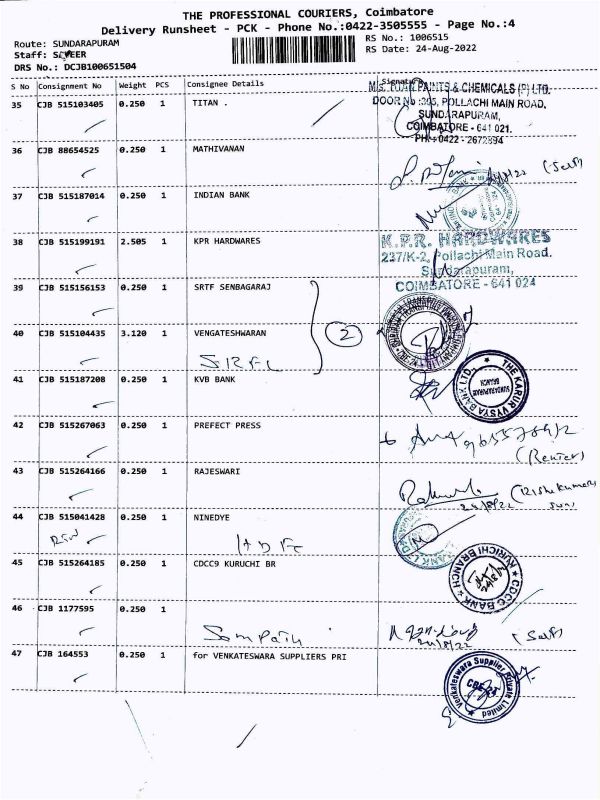 THE PROFESSIONAL COURIERS, Coimbatore
Delivery Runsheet - PCK - Phone No.:0422-3505555 - Page No.:4
Route: SUNDARAPURAM
RS No.: 1006515
RS Date: 24-Aug-2022
DRS No.: DCJB100651504
S No Consignment No Weight PCS Consignee Details Signature
35 CJB 515103405 0.250 1 TITAN .
& CHEMICALS (P) LTD.
POLLACHI MAIN ROAD,
SUNDARAPURAM,
COIMBATORE - 641 021.
36 CJB 88654525 0.250 1 MATHIVANAN
(Self)
37 CJB 515187014 0.250 1 INDIAN BANK
38 CJB 515199191 2.505 1 KPR HARDWARES
K.P.R. HARDWARES
237/K-2, Pollachi Main Road.
Sundarapuram,
COIMBATORE - 641 024
39 CJB 515156153 0.250 1 SRTF SENBAGARAJ
2
40 CJB 515104435 3.120 1 VENGATESHWARAN
41 CJB 515187208 0.250 1 KVB BANK
THE KARUR VYSYA BANK LTD.,
SUNDARAPURAM
BRANCH
42 CJB 515267063 0.250 1 PREFECT PRESS
(Renter)
43 CJB 515264166 0.250 1 RAJESWARI
44 CJB 515041428 0.250 1 NINEDYE
HDFC
45 CJB 515264185 0.250 1 CDCC9 KURUCHI BR
CDCC BANK
KURICHI BRANCH
46 CJB 1177595 0.250 1
Sampath
24/8/22
(Self)
47 CJB 164553 0.250 1 for VENKATESWARA SUPPLIERS PRI
Venkateswara Supplier Private Limited